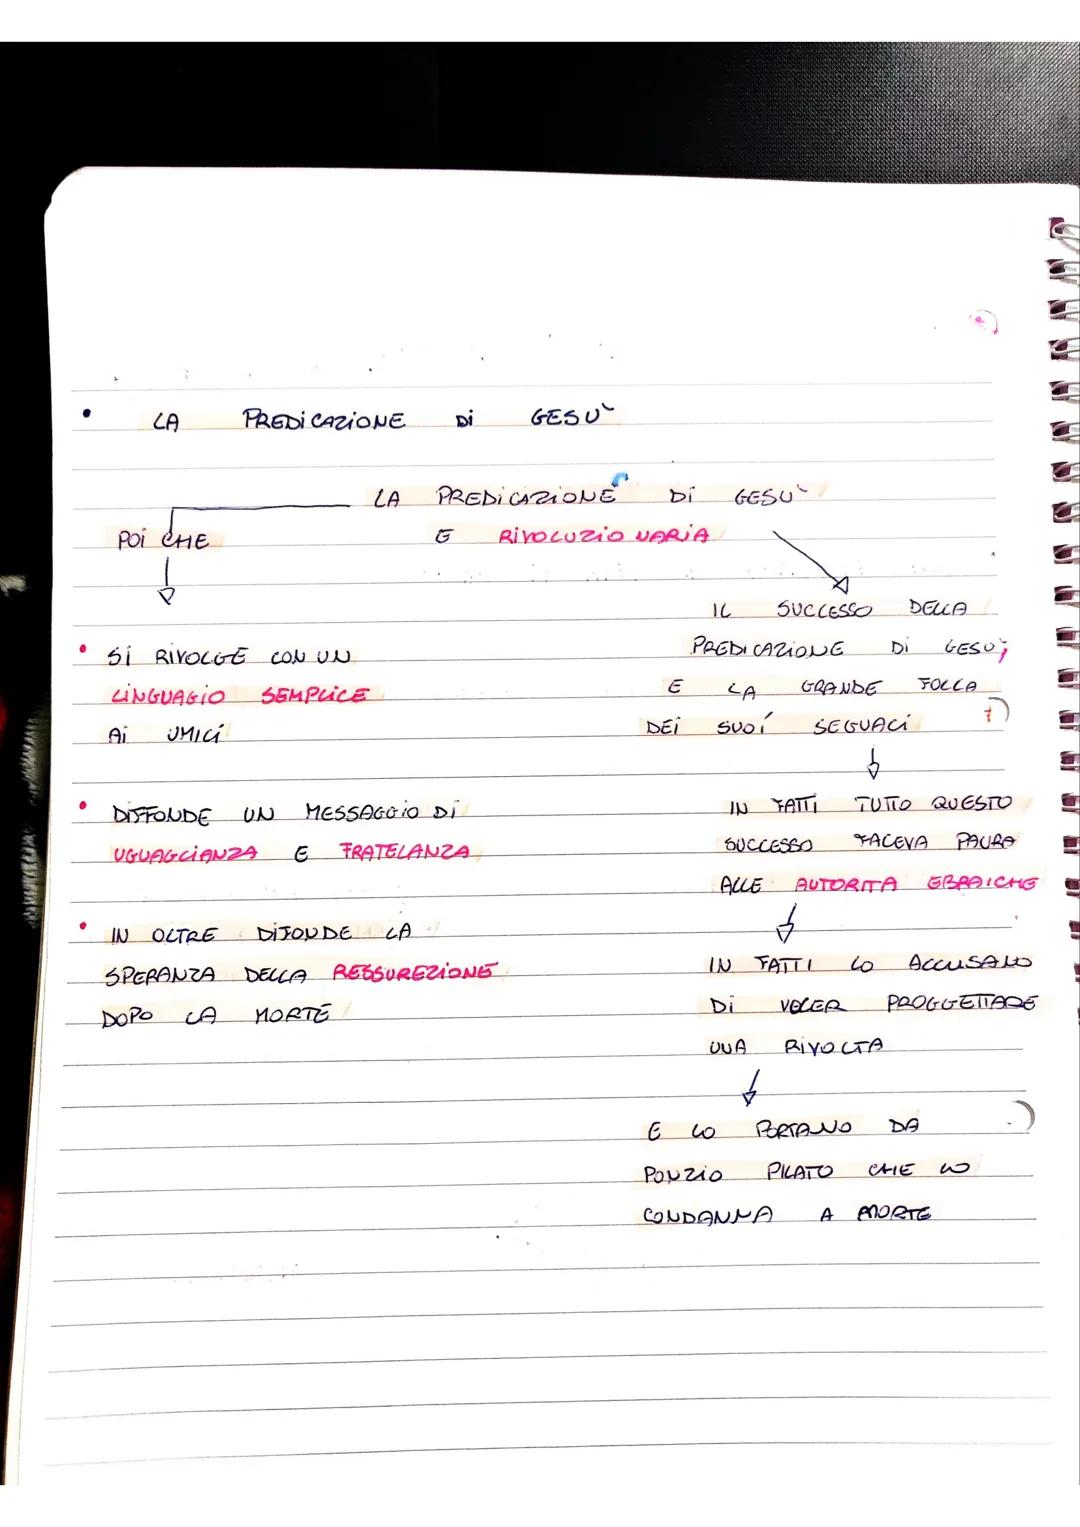 • LA PREDICAZIONE Di GESU'
LA PREDICAZIONE Di GESU'
E RIVOLUZIO NARIA
POI CHE
• SI RIVOLGE CON UN
LINGUAGIO SEMPLICE
Ai UMICI
• DIFFONDE UN MESSAGGIO Di
UGUAGLIANZA E FRATELANZA
• IN OLTRE DIFONDE LA
SPERANZA DELLA RESSUREZIONE
DOPO LA MORTE
IL SUCCESSO DELLA
PREDICAZIONE Di GESU';
E LA GRANDE FOLLA
DEI SUOI SEGUACI
IN FATTI TUTTO QUESTO
SUCCESSO FACEVA PAURA
ALLE AUTORITA EBRAICHE
IN FATTI LO ACCUSANO
Di VOLER PROGGETTARE
UNA RIVOLTA
E LO PORTANO DA
PONZIO PILATO CHE LO
CONDANNA A MORTE